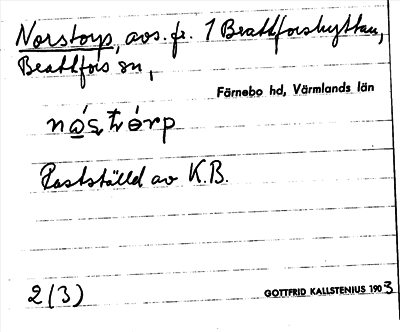 Norstorp, avs. fr. 1 Brattforshyttan,
Brattfors sn,
Färnebo hd, Värmlands län
Fastställd av K.B.
2(3)
GOTTFRID KALLSTENIUS 1903